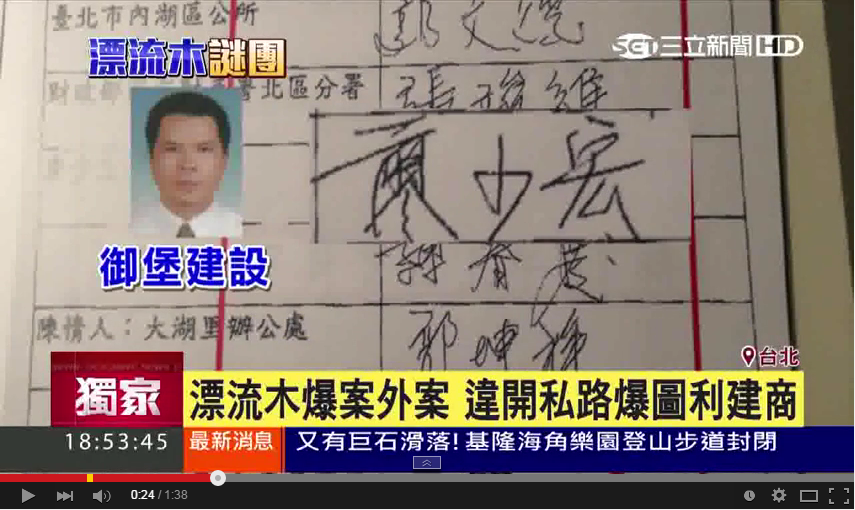 臺北市內湖區公所
SET三立新聞HD
漂流木謎團
財政部 北區分署
廖少宏
御堡建設
陳情人：大湖里辦公處
台北
獨家
漂流木爆案外案 違開私路爆圖利建商
18:53:45
最新消息
又有巨石滑落!基隆海角樂園登山步道封閉
0:24 / 1:38